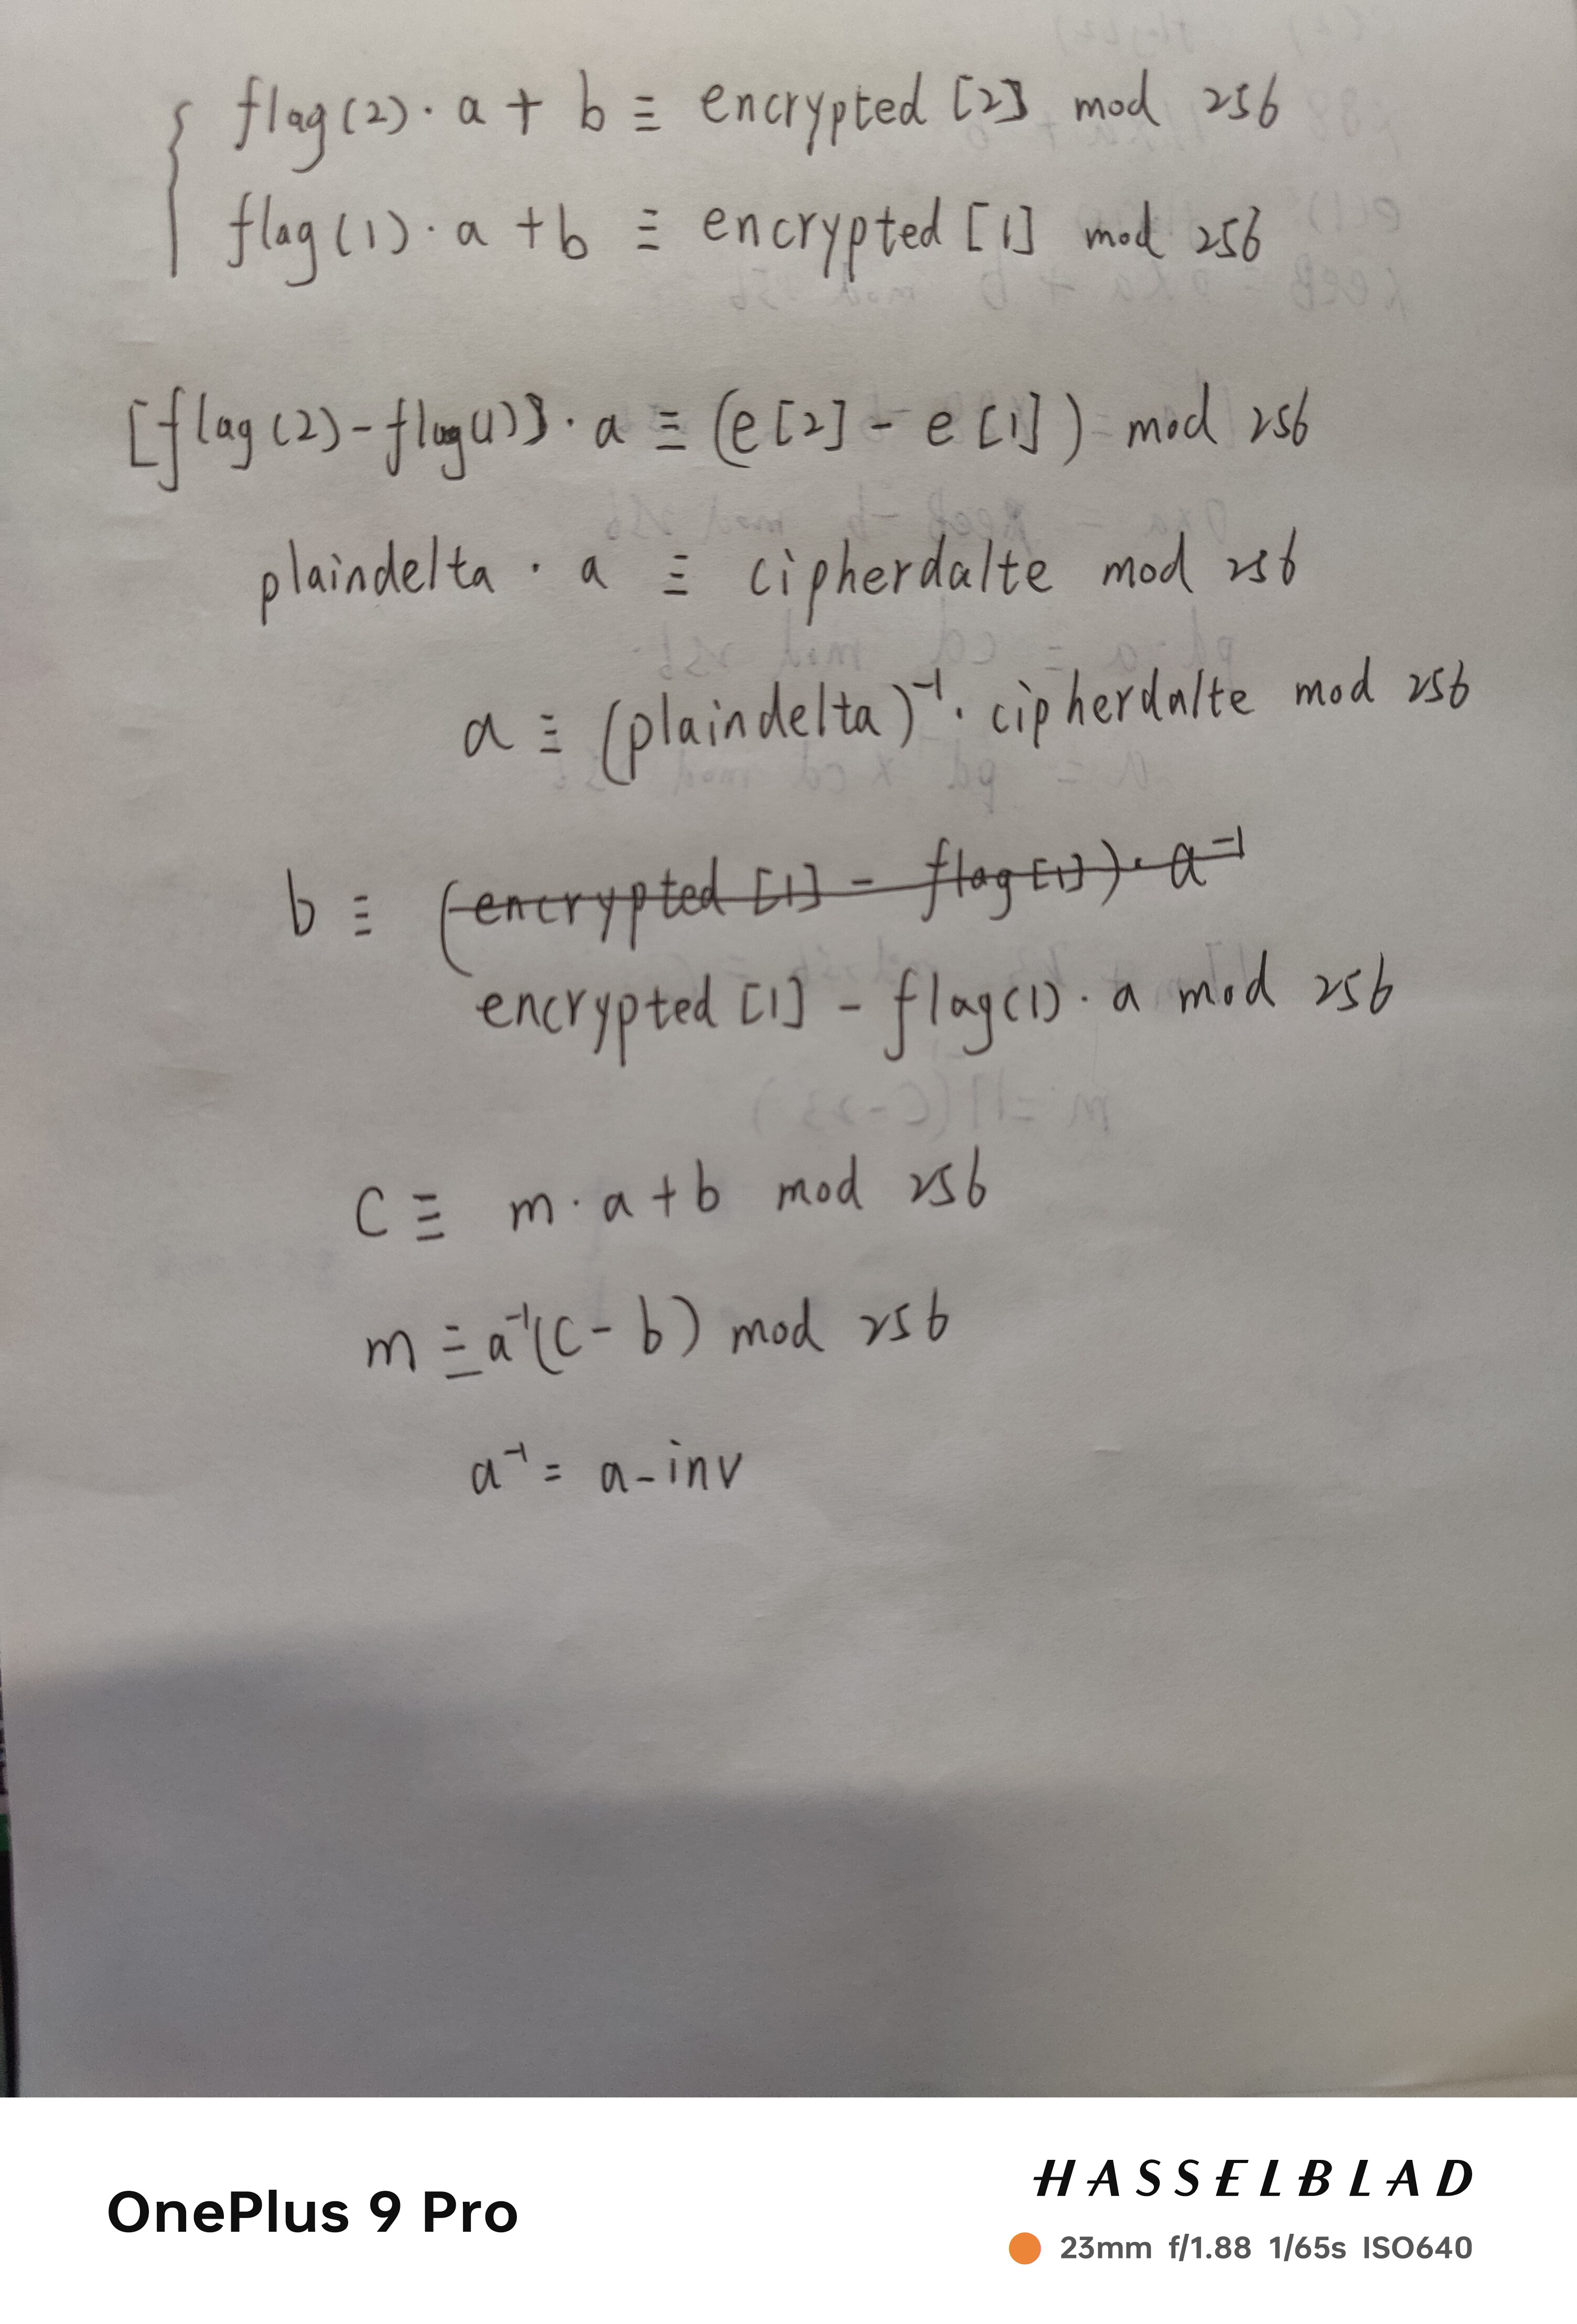 flag(2)·a + b ≡ encrypted [2] mod 256
flag(1)·a + b ≡ encrypted [1] mod 256
[flag(2)-flag(1)]·a ≡ (e[2] - e[1]) mod 256
plaindelta · a ≡ cipherdalte mod 256
a ≡ (plaindelta)⁻¹· cipherdalte mod 256
b ≡ (encrypted [1] - flag[1])· a⁻¹
encrypted [1] - flag(1)· a mod 256
C ≡ m·a+b mod 256
m ≡ a⁻¹(C-b) mod 256
a⁻¹ = a-inv
OnePlus 9 Pro
HASSELBLAD
23mm f/1.88 1/65s ISO640